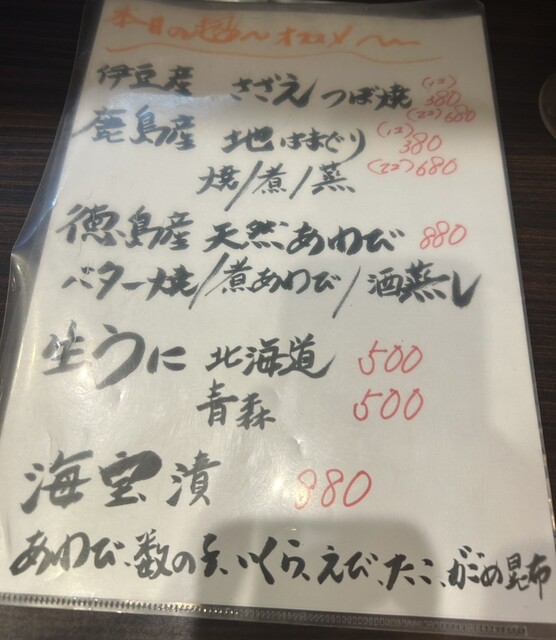 本日の超〜オススメ〜
伊豆産 さざえつぼ焼 (1コ) 380
(2コ) 680
鹿島産 地はまぐり (1コ) 380
焼/煮/蒸 (2コ) 680
徳島産 天然あわび 880
バター焼/煮あわび/酒蒸し
生うに 北海道 500
青森 500
海宝漬 880
あわび、数の子、いくら、えび、たこ、がごめ昆布